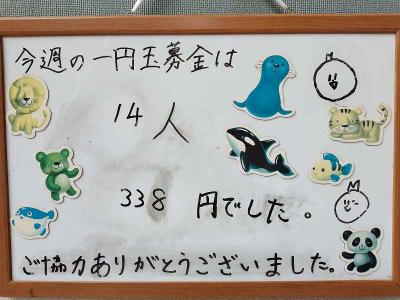 今週の一円玉募金は
14人
338円でした。
ご協力ありがとうございました。